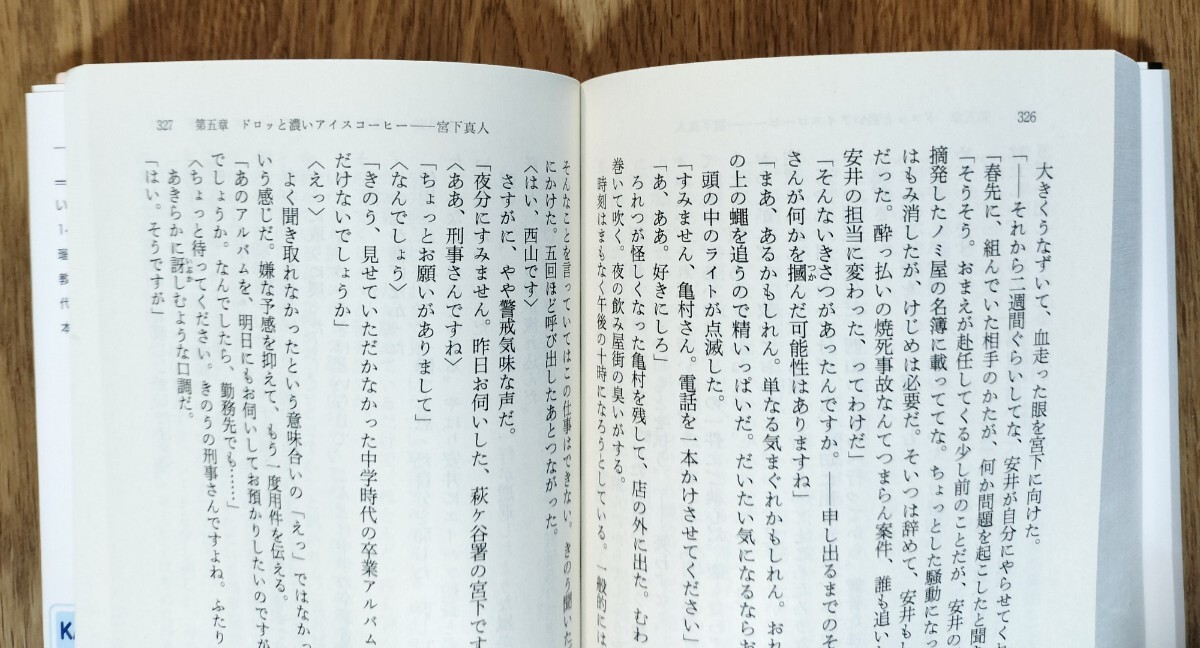 326
大きくうなずいて、血走った眼を宮下に向けた。
「――それから二週間ぐらいしてな、安井が自分にやらせてくれ
「春先に、組んでいた相手のかたが、何か問題を起こしたと聞き
「そうそう。おまえが赴任してくる少し前のことだが、安井の
摘発したノミ屋の名簿に載っててな。ちょっとした騒動になっ
はもみ消したが、けじめは必要だ。そいつは辞めて、安井もし
だった。酔っ払いの焼死事故なんてつまらん案件、誰も追い
安井の担当に変わった、ってわけだ」
「そんないきさつがあったんですか。――申し出るまでのそ
さんが何かを摑んだ可能性はありますね」
「まあ、あるかもしれん。単なる気まぐれかもしれん。おれ
の上の蠅を追うので精いっぱいだ。だいたい気になるならお
頭の中のライトが点滅した。
「すみません、亀村さん。電話を一本かけさせてください」
「あ、ああ。好きにしろ」
ろれつが怪しくなった亀村を残して、店の外に出た。むわ
巻いて吹く。夜の飲み屋街の臭いがする。
時刻はまもなく午後の十時になろうとしている。一般的には
327 第五章 ドロッと濃いアイスコーヒー――宮下真人
そんなことを言っていてはこの仕事はできない。きのう聞いた
にかけた。五回ほど呼び出したあとつながった。
〈はい、西山です〉
さすがに、やや警戒気味な声だ。
「夜分にすみません。昨日お伺いした、萩ケ谷署の宮下です
〈ああ、刑事さんですね〉
「ちょっとお願いがありまして」
〈なんでしょう〉
「きのう、見せていただかなかった中学時代の卒業アルバム
だけないでしょうか」
〈えっ〉
よく聞き取れなかったという意味合いの「えっ」ではなかっ
いう感じだ。嫌な予感を抑えて、もう一度用件を伝える。
「あのアルバムを、明日にもお伺いしてお預かりしたいのですが
でしょうか。なんでしたら、勤務先でも……」
〈ちょっと待ってください。きのうの刑事さんですよね。ふたり
あきらかに訝しむような口調だ。
「はい。そうですが」
い・理教代本
KA